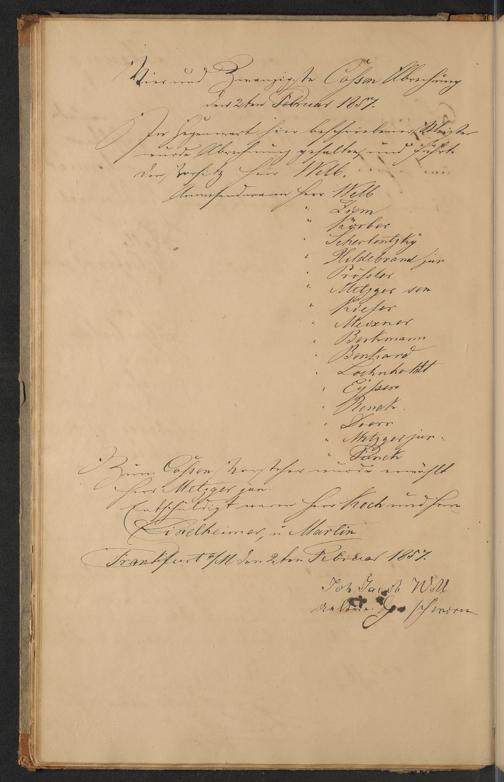 Vier und Zwanzigste Cassen Abrechnung
den 2ten Februar 1857.
In Gegenwart hier beschriebener Meister
wurde Abrechnung gehalten und führte
den Vorsitz Herr Welb.
Anwesend waren Herr Welb
" Ziem
" Körber
" Scherlentzky
" Hildebrand jun
" Prößler
" Metzger sen
" Kieser
" Meixner
" Berkmann
" Bernhard
" 
" Eyssen
" Renck.
" Doerr
" Metzger jun.
" Planck
Zum Cassen Vorsteher wurde erwählt
Herr Metzger jun
Entschuldigt waren Herr Koch und Herr
Eixelheimer, u Martin
Frankfurt a/M den 2ten Februar 1857.
Joh Jacob Welb